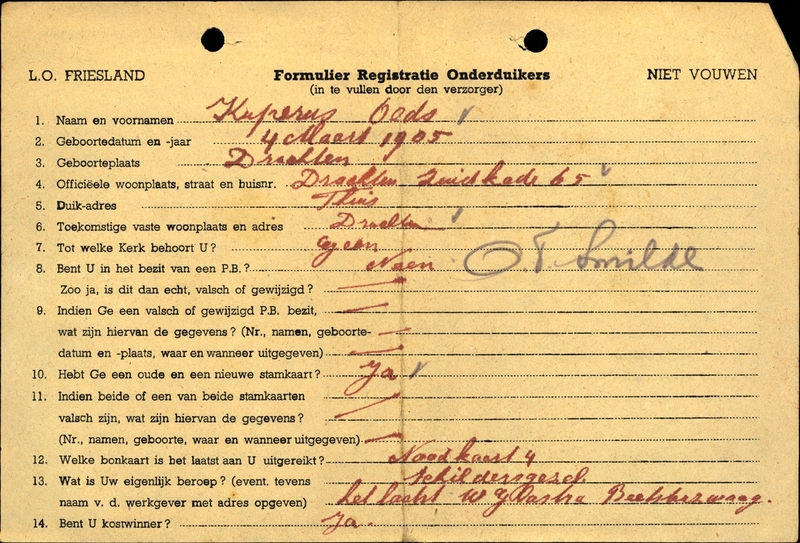 L.O. FRIESLAND Formulier Registratie Onderduikers NIET VOUWEN
(in te vullen door den verzorger)
1. Naam en voornamen Kuperus Oeds
2. Geboortedatum en -jaar 4 Maart 1905
3. Geboorteplaats Drachten
4. Officiëele woonplaats, straat en huisnr. Drachten Zuidkade 65
5. Duik-adres Thuis
6. Toekomstige vaste woonplaats en adres Drachten
7. Tot welke Kerk behoort U? Geen
8. Bent U in het bezit van een P.B.? Neen Smilde
Zoo ja, is dit dan echt, valsch of gewijzigd?
9. Indien Ge een valsch of gewijzigd P.B. bezit,
wat zijn hiervan de gegevens? (Nr., namen, geboorte-
datum en -plaats, waar en wanneer uitgegeven)
10. Hebt Ge een oude en een nieuwe stamkaart? Ja
11. Indien beide of een van beide stamkaarten
valsch zijn, wat zijn hiervan de gegevens?
(Nr., namen, geboorte, waar en wanneer uitgegeven)
12. Welke bonkaart is het laatst aan U uitgereikt? Noodkaart 4
13. Wat is Uw eigenlijk beroep? (event. tevens Schildersgezel
naam v. d. werkgever met adres opgeven) het laatst W Beetsterzwaag.
14. Bent U kostwinner? Ja.